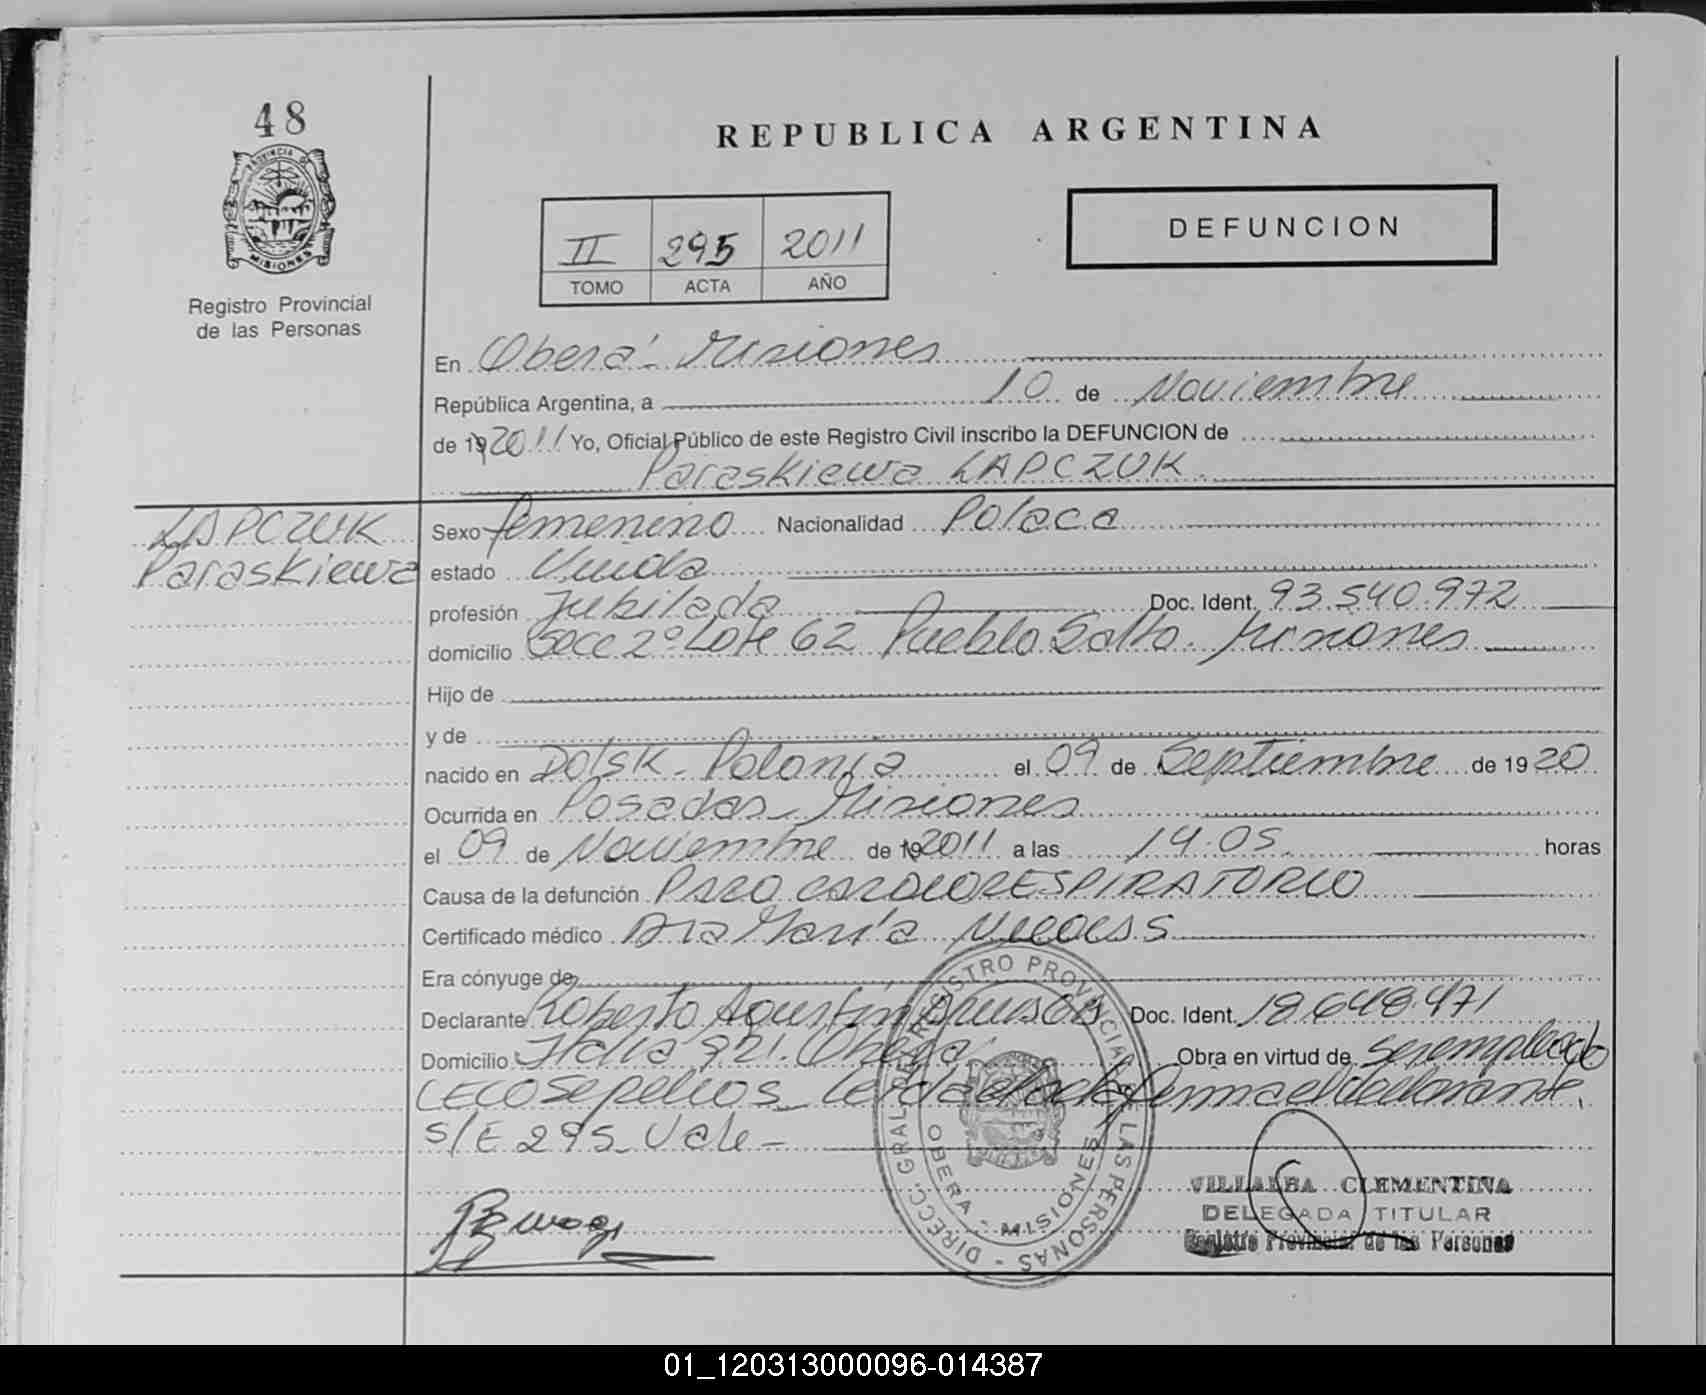 48
PROVINCIA DE
MISIONES
Registro Provincial
de las Personas
REPUBLICA ARGENTINA
II 295 2011
TOMO ACTA AÑO
DEFUNCION
En Oberá - Misiones
República Argentina, a 10 de Noviembre
de 19 2011 Yo, Oficial Público de este Registro Civil inscribo la DEFUNCION de
Paraskiewa LAPCZUK
LAPCZUK
Paraskiewa
Sexo femenino Nacionalidad Polaca
estado Viuda
profesión Jubilada Doc. Ident. 93.540.972
domicilio 2º Lote 62 Pueblo Salto. Misiones
Hijo de
y de
nacido en Dolsk - Polonia el 09 de Septiembre de 1920
Ocurrida en Posadas Misiones
el 09 de Noviembre de 19 2011 a las 14.05 horas
Causa de la defunción PARO CARDIORESPIRATORIO
Certificado médico Dra María
Era cónyuge de
Declarante Roberto Agustín Doc. Ident. 18.648.471
Domicilio Italia 921. Oberá Obra en virtud de ser empleado
CECO Sepelios - Leida el acta firma el declarante.
S/E 295 - Vale -
DIRECC. GRAL. DEL REGISTRO PROVINCIAL DE LAS PERSONAS -
OBERA - MISIONES
VILLALBA CLEMENTINA
DELEGADA TITULAR
Registro Provincial de las Personas
01_120313000096-014387